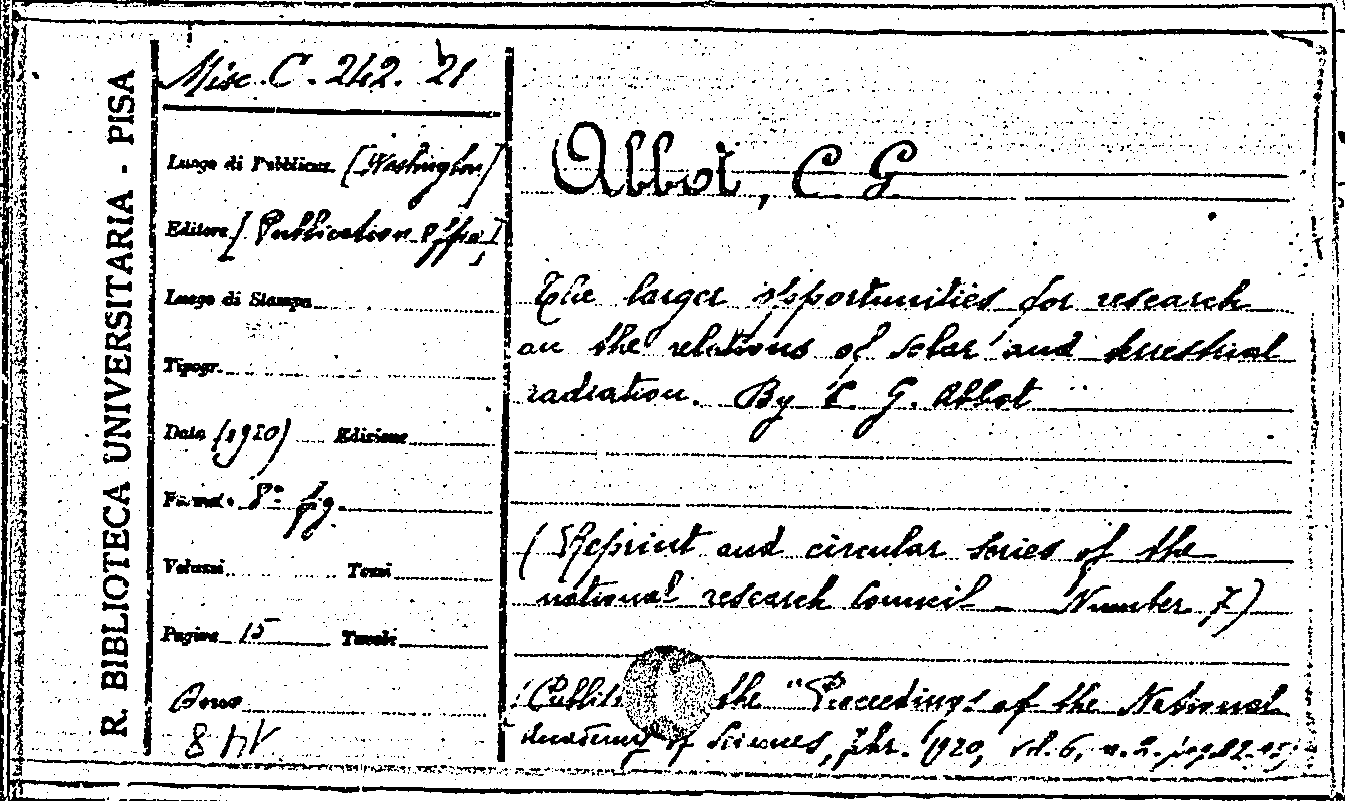 R. BIBLIOTECA UNIVERSITARIA - PISA
Misc. C. 242. 21
Luogo di Pubblicaz. [Washington]
Editore [Publication Office]
Luogo di Stampa
Tipogr.
Data (1920) Edizione
Formato 8° fig.
Volumi Tomi
Pagine 15 Tavole
Dono
Abbot, C G
The larger opportunities for research
on the relations of solar and terrestrial
radiation. By C. G. Abbot
(Reprint and circular series of the
national research Council - Number 7)
the "Proceedings of the National
Academy of Sciences, 1920, vol. 6, n. 2.